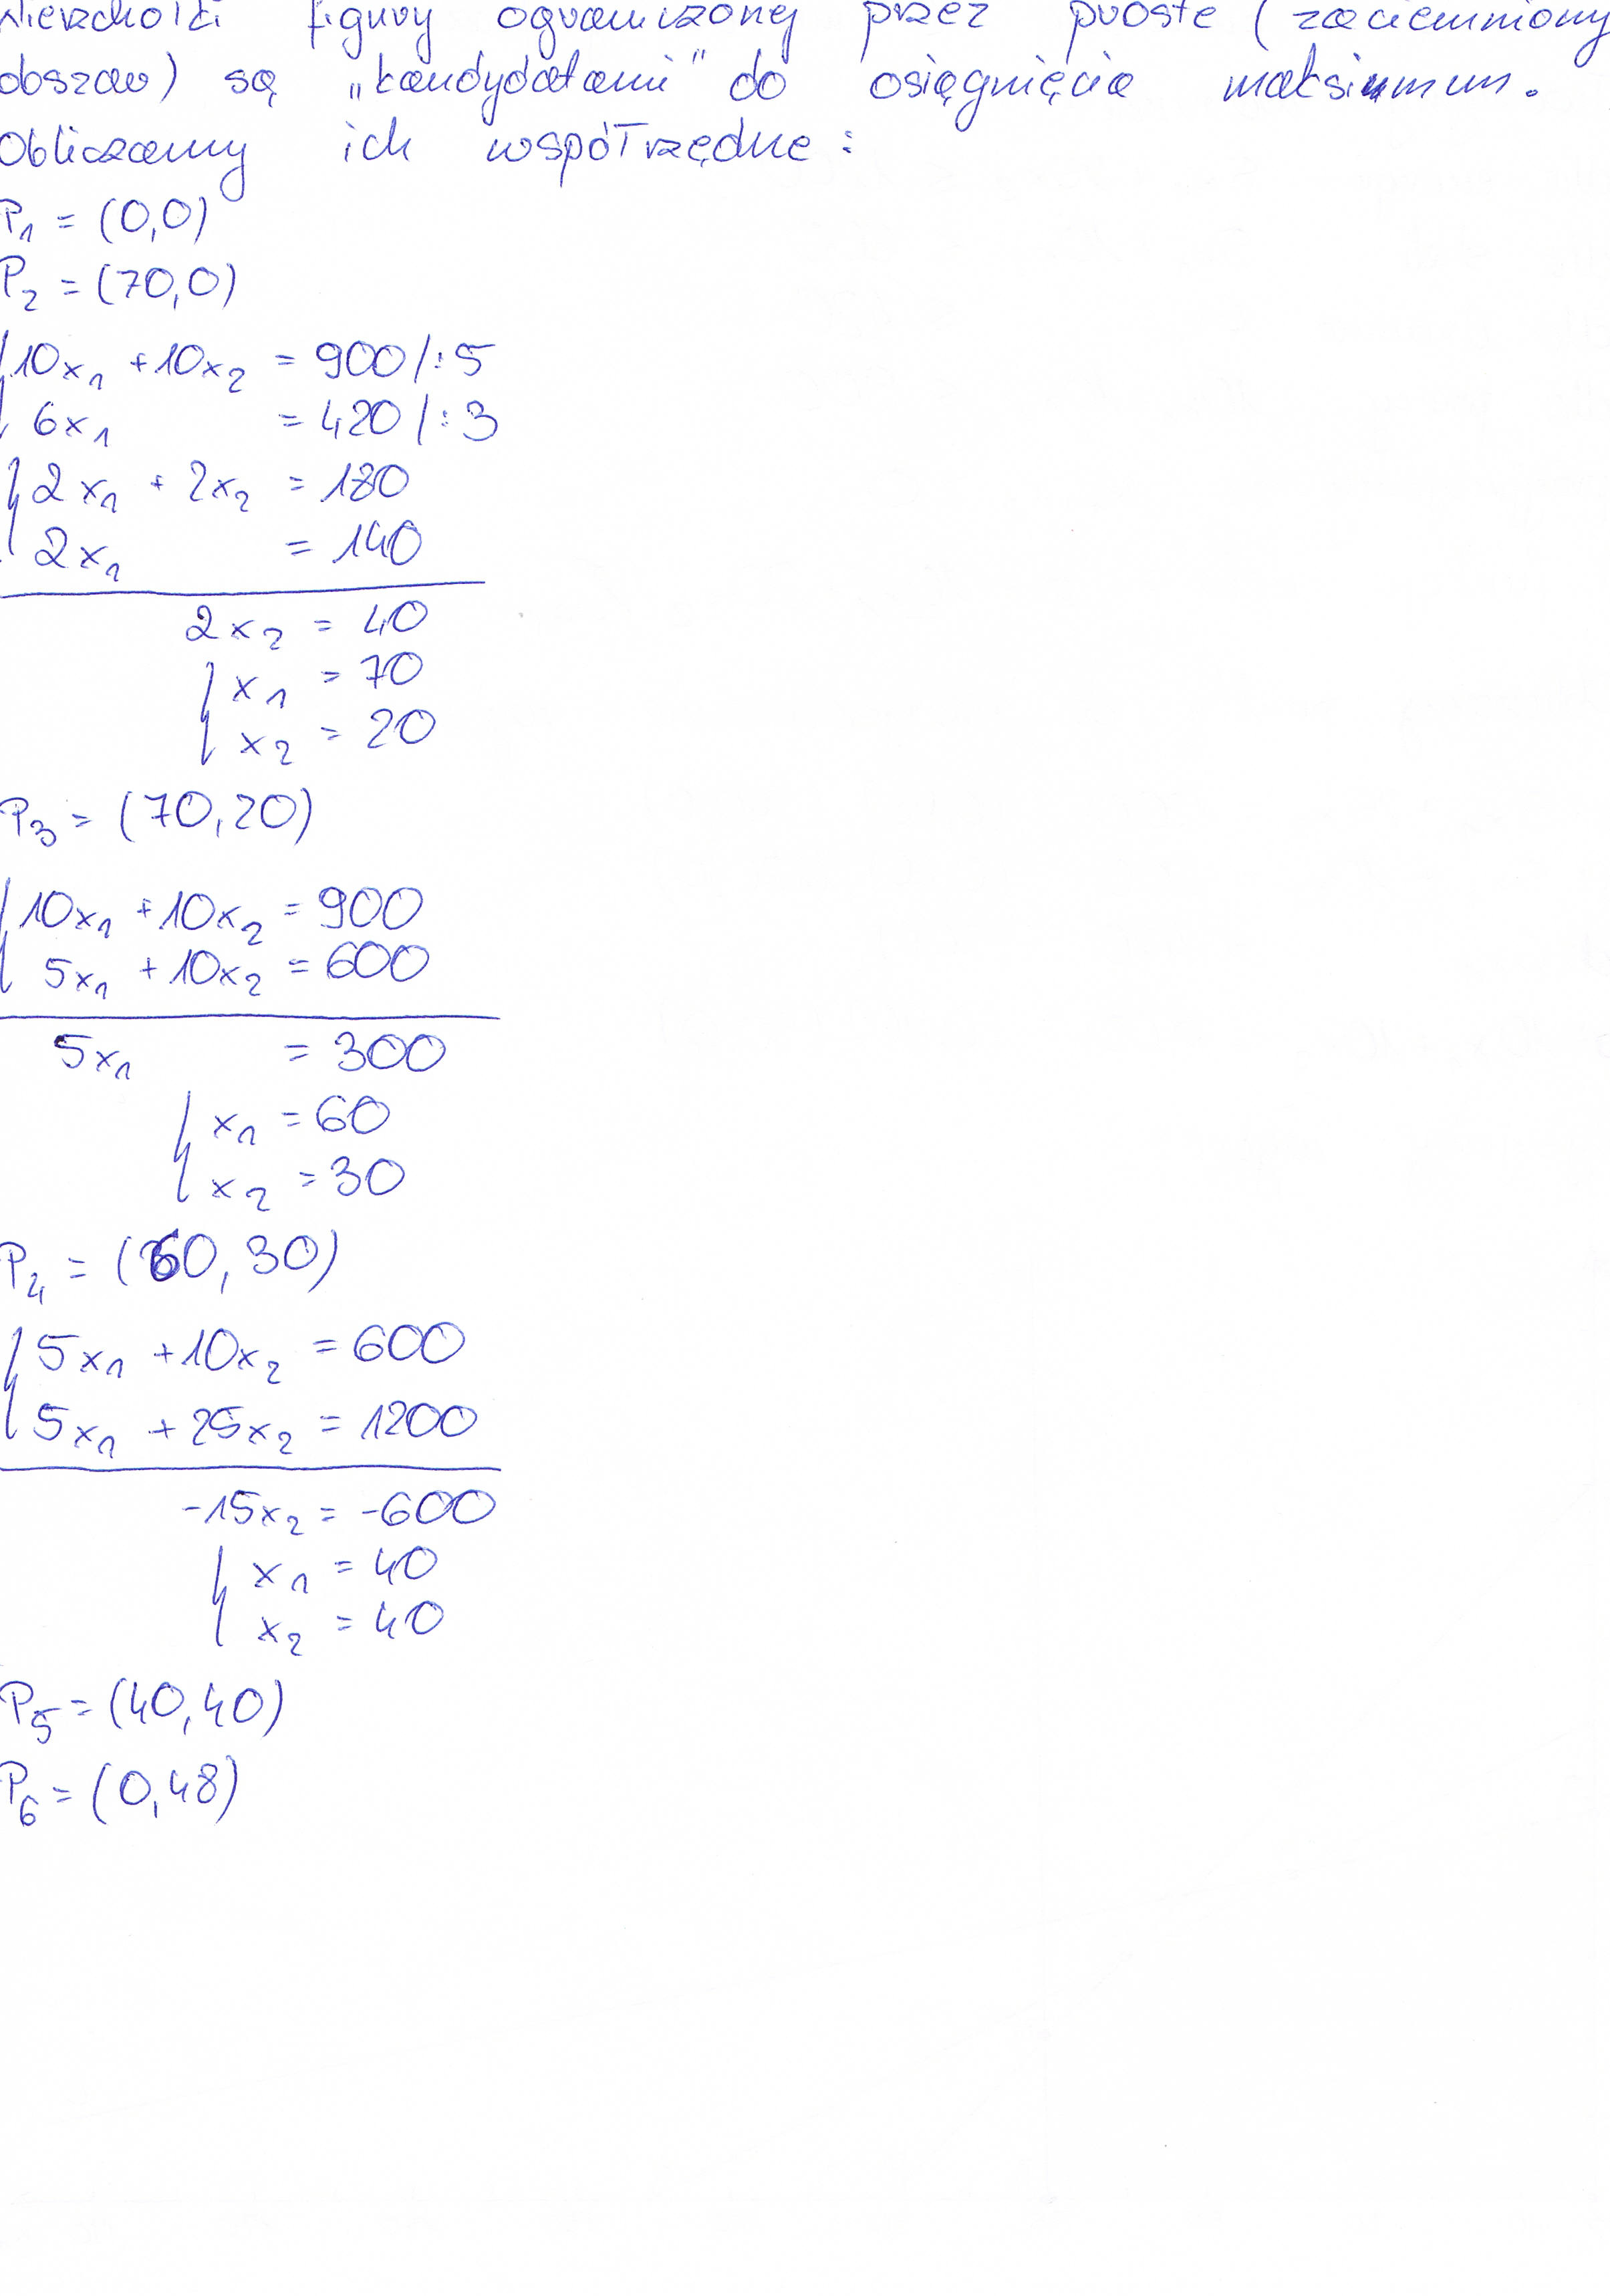 Wierzchołki figury ograniczonej przez proste (zaciemniony
obszar) są „kandydatami" do osiągnięcia maksimum.
Obliczamy ich współrzędne:
P₁ = (0,0)
P₂ = (70,0)
10x₁ + 10x₂ = 900 /:5
6x₁ = 420 /:3
2x₁ + 2x₂ = 180
2x₁ = 140
2x₂ = 40
x₁ = 70
x₂ = 20
P₃ = (70,20)
10x₁ + 10x₂ = 900
5x₁ + 10x₂ = 600
5x₁ = 300
x₁ = 60
x₂ = 30
P₄ = (60,30)
5x₁ + 10x₂ = 600
5x₁ + 25x₂ = 1200
-15x₂ = -600
x₁ = 40
x₂ = 40
P₅ = (40,40)
P₆ = (0,48)